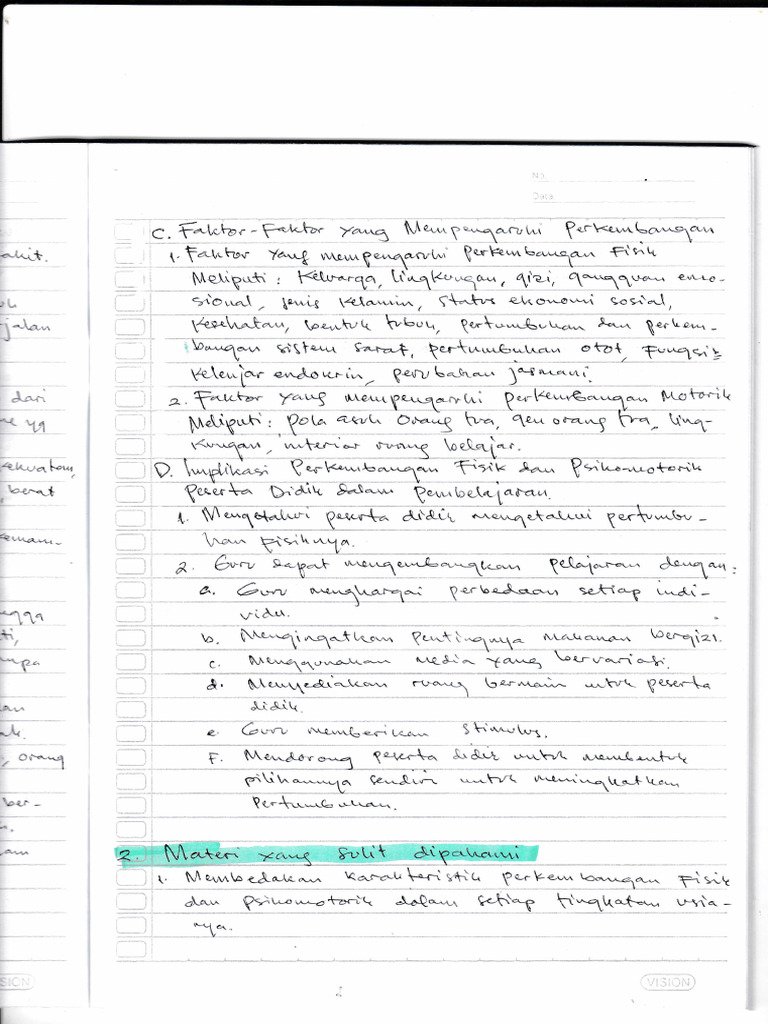 No.
Date
C. Faktor-Faktor yang Mempengaruhi Perkembangan
1. Faktor yang mempengaruhi Perkembangan Fisik
Meliputi : Keluarga, lingkungan, gizi, gangguan emo-
sional, jenis kelamin, status ekonomi sosial,
Kesehatan, bentuk tubuh, pertumbuhan dan perkem-
bangan sistem saraf, pertumbuhan otot, Fungsi2
kelenjar endokrin, perubahan jasmani.
2. Faktor yang mempengaruhi perkembangan Motorik
Meliputi : pola asuh orang tua, gen orang tua, ling-
kungan, interior ruang belajar.
D. Implikasi Perkembangan Fisik dan Psikomotorik
Peserta Didik dalam Pembelajaran.
1. Mengetahui peserta didik mengetahui pertumbu-
han fisiknya.
2. Guru dapat mengembangkan pelajaran dengan :
a. Guru menghargai perbedaan setiap indi-
vidu.
b. Mengingatkan pentingnya makanan bergizi.
c. Menggunakan media yang bervariasi.
d. Menyediakan ruang bermain untuk peserta
didik.
e. Guru memberikan stimulus.
F. Mendorong peserta didik untuk membentuk
pilihannya sendiri untuk meningkatkan
Pertumbuhan.
2. Materi yang sulit dipahami
1. Membedakan karakteristik perkembangan Fisik
dan psikomotorik dalam setiap tingkatan usia-
nya.
VISION